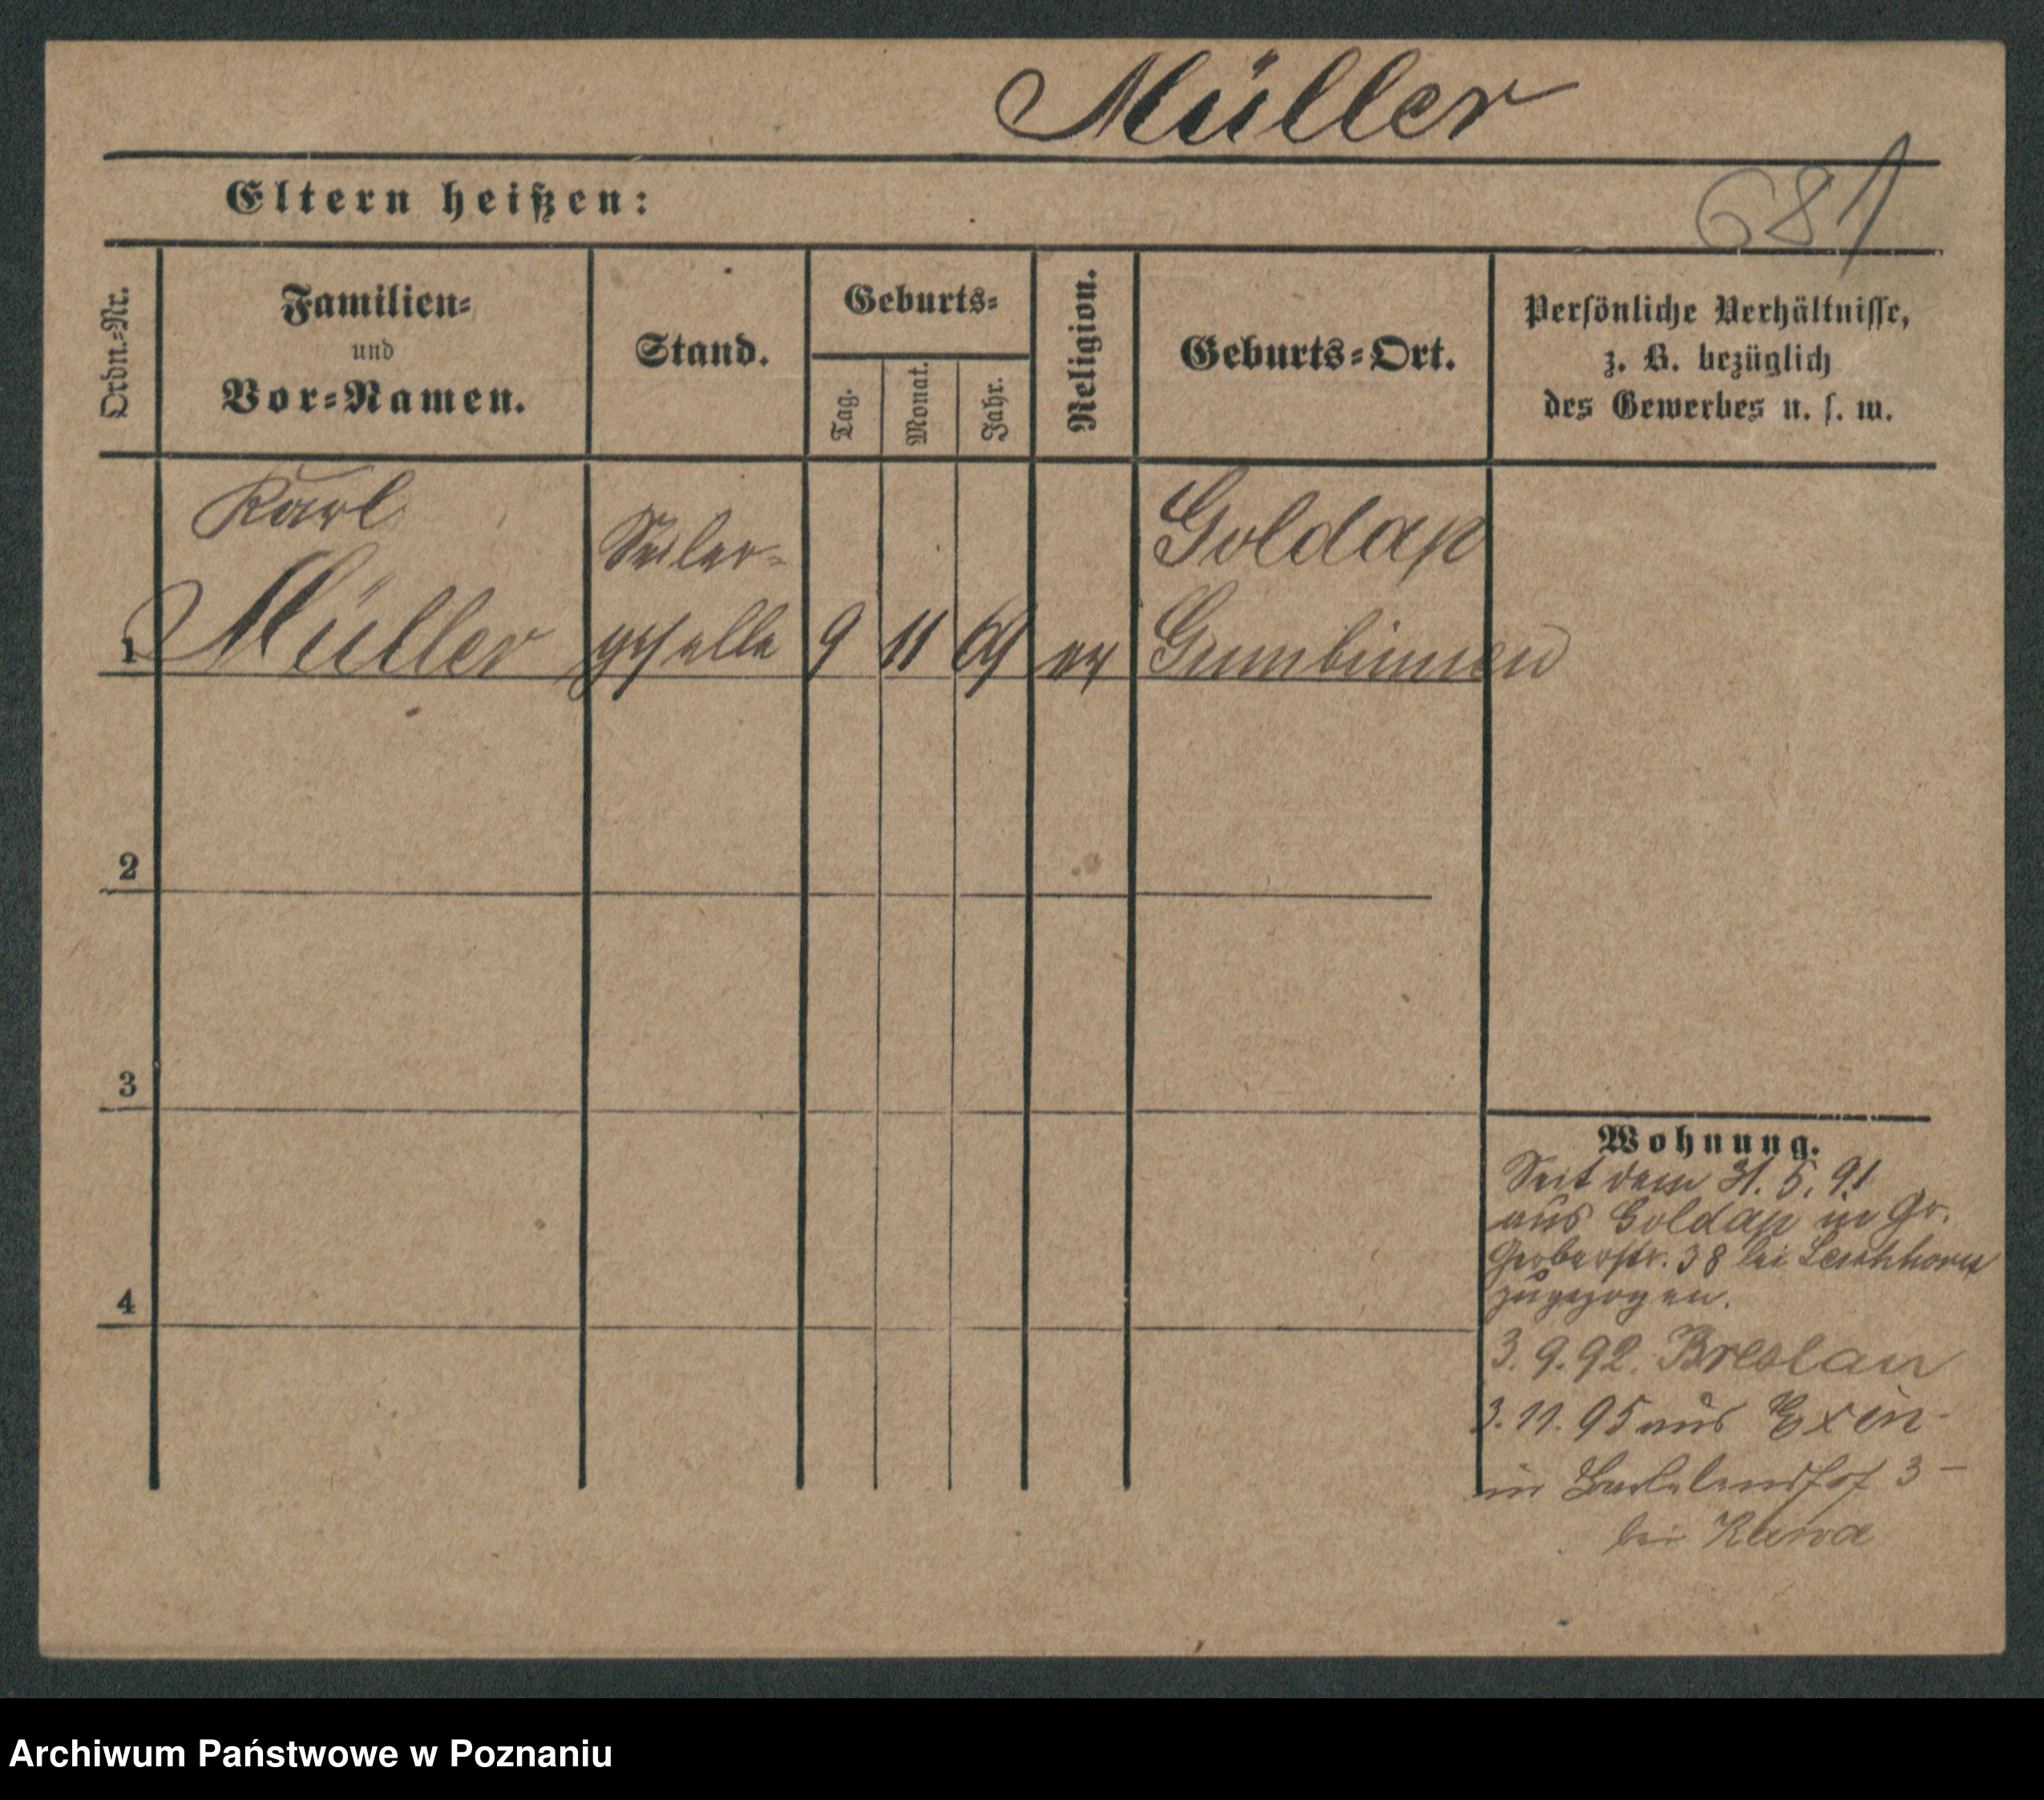 Müller
681
Eltern heißen:
Ordn.-Nr.
Familien-
und
Vor-Namen.
Stand.
Geburts-
Tag.
Monat.
Jahr.
Religion.
Geburts-Ort.
Persönliche Verhältnisse,
z. B. bezüglich
des Gewerbes u. s. w.
Karl
Müller
Seiler-
geselle
9 11 69 ev
Goldap
Gumbinnen
1
2
3
4
Wohnung.
Seit dem 31. 5. 91
aus Goldap in Gr.
Gerberstr. 38 bei
zugezogen.
3. 9. 92. Breslau
3. 11. 95 aus Exin
in 3
bei
Archiwum Państwowe w Poznaniu